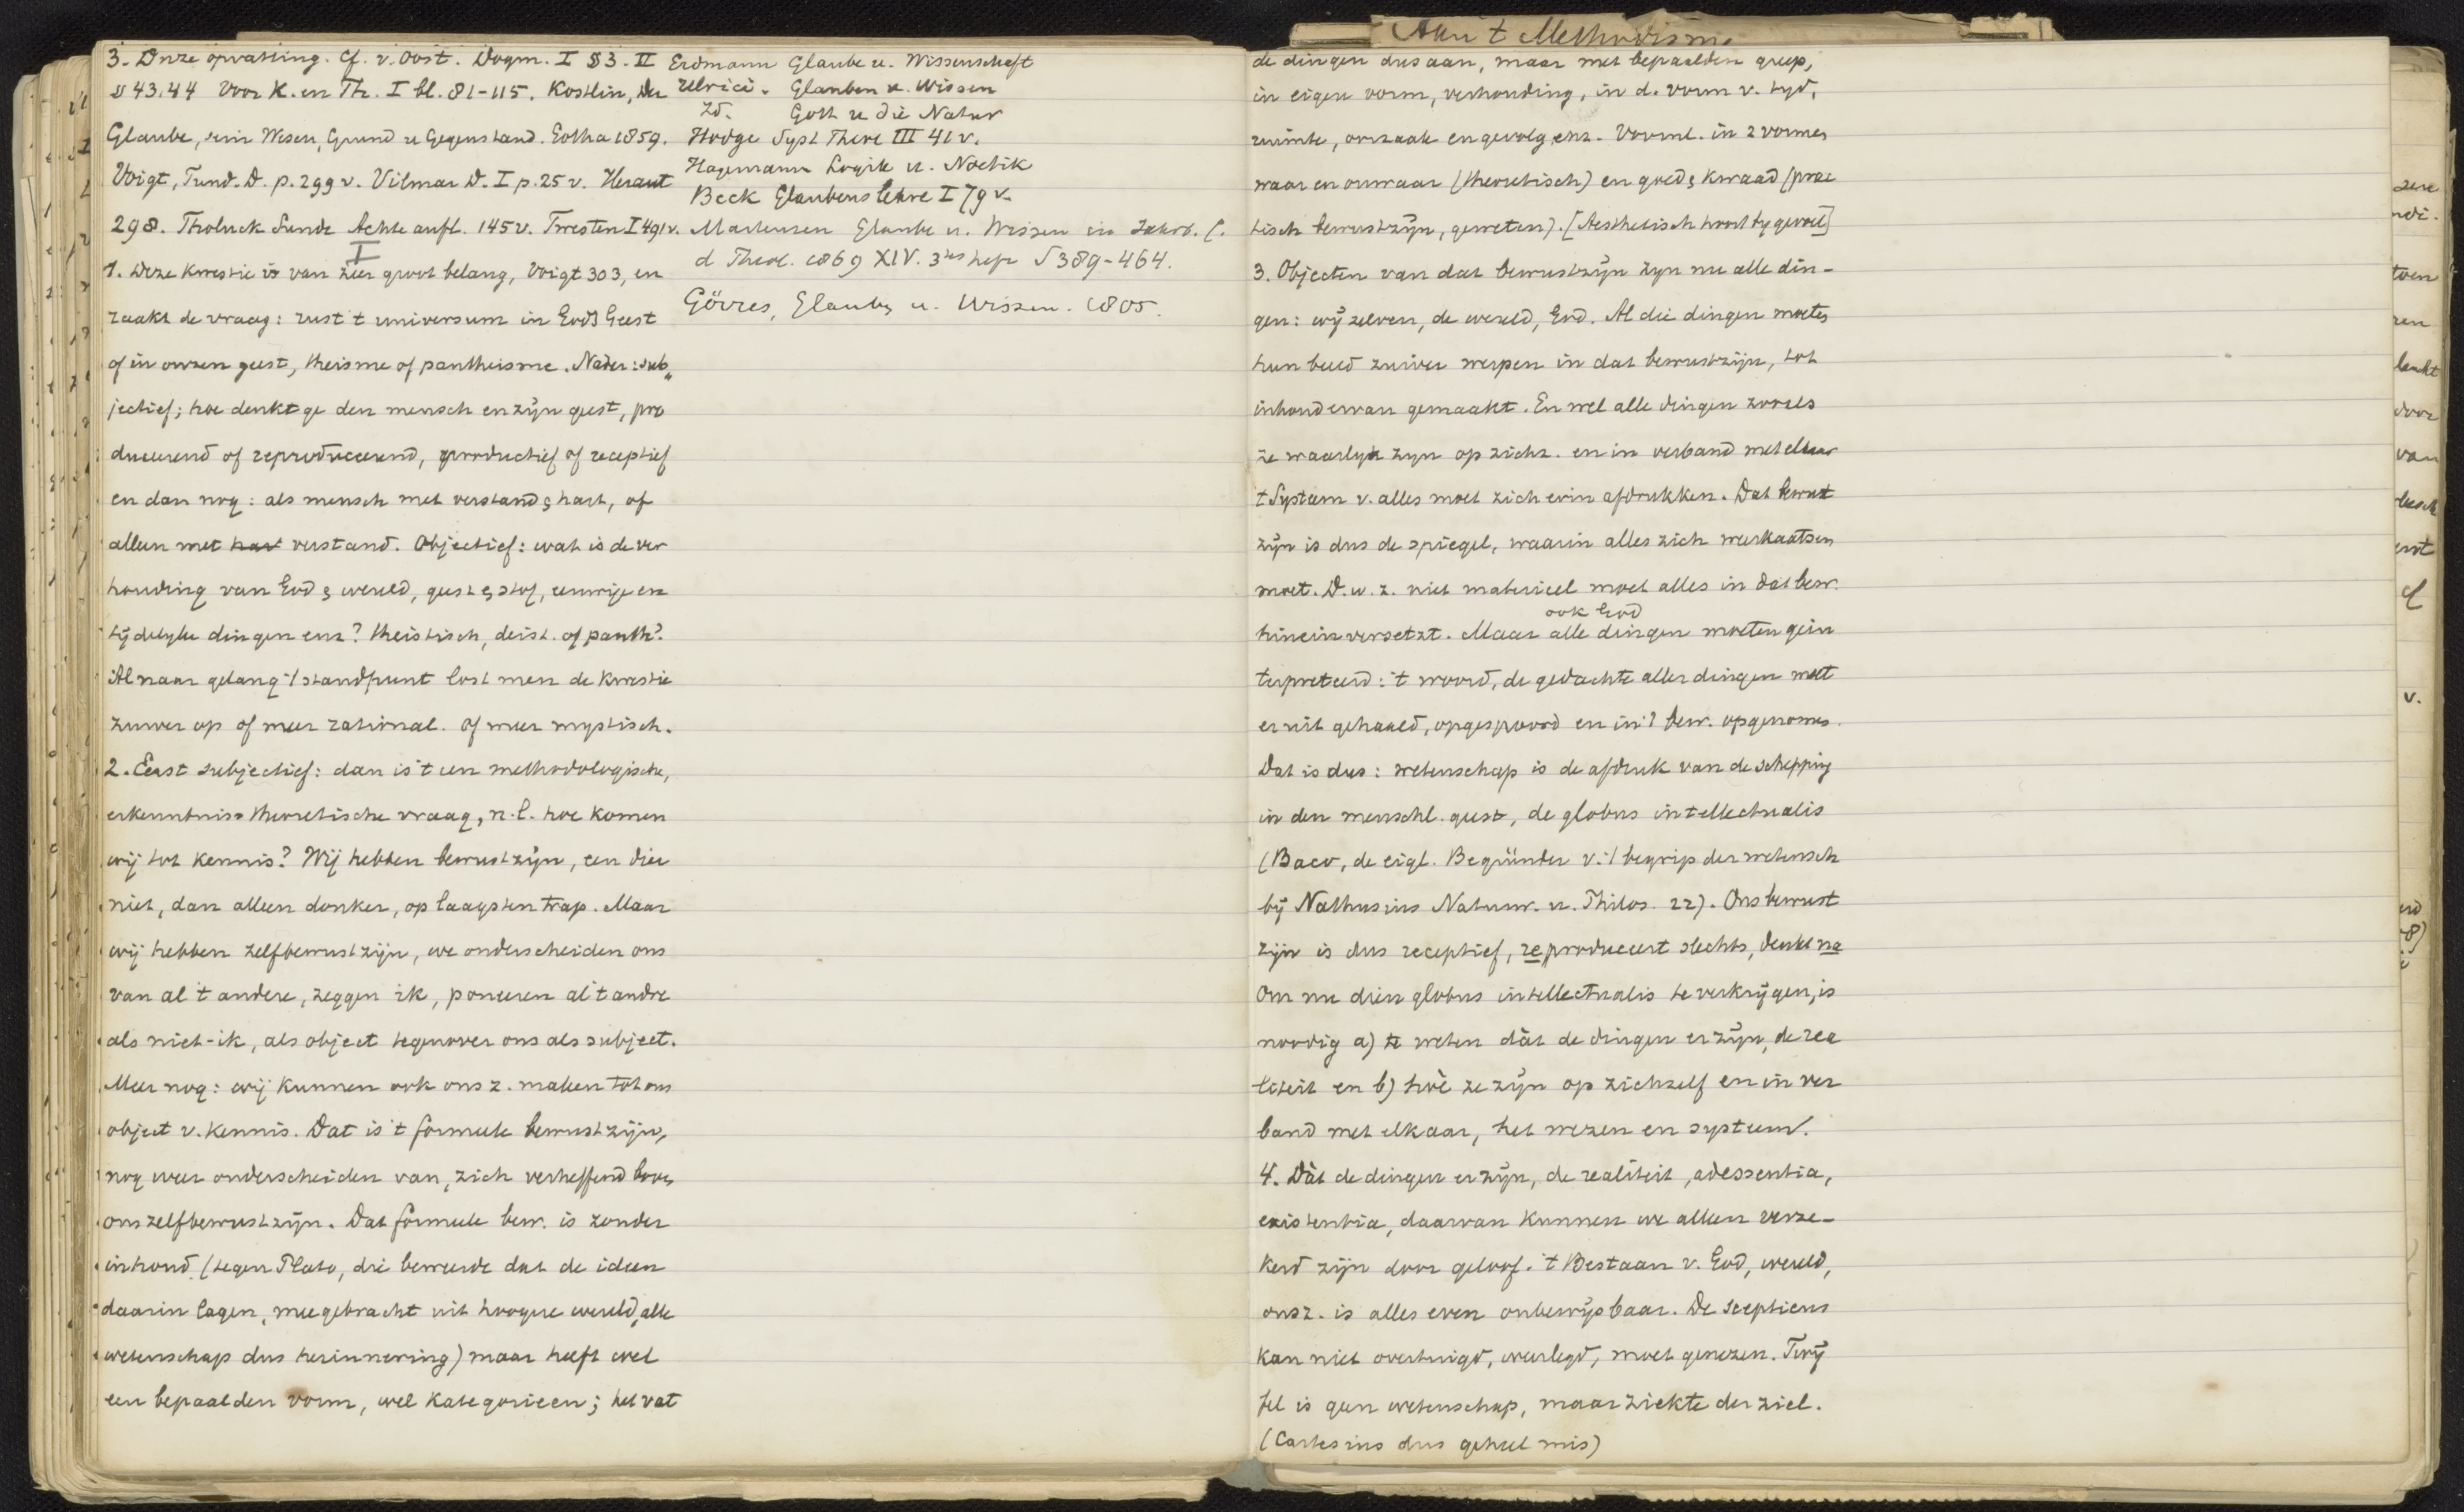 3. Onze opvatting. Cf. v. Oost. Dogm. I § 3. II
§ 43.44 Voor K. en Th. I bl. 81-115. Kostlin, Der
Glaube, sein Wesen, Grund u Gegenstand. Gotha 1859.
Voigt, Fund. D. p. 299 v. Vilmar D. I p. 25 v. Heraut
298. Tholuck Sunde Achte aufl. 145 v. Twesten I 491 v.
I
1. Deze kwestie is van zeer groot belang, Voigt 303, en
raakt de vraag: rust 't universum in Gods Geest
of in onzen geest, theisme of pantheisme. Nader: sub„
jectief; hoe denkt ge den mensch en zijn geest, pro
duceerend of reproduceerend, productief of receptief
en dan nog: als mensch met verstand & hart, of
alleen met hart verstand. Objectief: wat is de ver
houding van God & wereld, geest & stof, eeuwige en
tijdelyke dingen enz? theistisch, deist. of panth?.
Al naar gelang 't standpunt lost men de kwestie
zuiver op of meer rational. of meer mystisch.
2. Eerst subjectief: dan is 't een methodologische,
erkenntniss theoretische vraag, n.l. hoe komen
wij tot kennis? Wij hebben bewustzijn, een dier
niet, dan alleen donker, op laagsten trap. Maar
wij hebben zelfbewustzijn, we onderscheiden ons
van al 't andere, zeggen ik, poneeren al 't andre
als niet-ik, als object tegenover ons als subject.
Meer nog: wij kunnen ook ons z. maken tot ons
object v. kennis. Dat is 't formeele bewustzijn,
nog weer onderscheiden van, zich verheffend boven
ons zelfbewustzijn. Dat formeele bew. is zonder
inhoud (tegen Plato, die beweerde dat de ideen
daarin lagen, meegebracht uit hoogere wereld, alle
wetenschap dus herinnering) maar heeft wel
een bepaalden vorm, wel kategorieen; het vat
Erdmann Glaube u. Wissenschaft
Ulrici. Glauben u. Wissen
Id. Gott u die Natur
Hodge Syst Theol III 41 v.
Hagemann Logik u. Noetik
Beck Glaubenslehre I 79 v.
Martensen Glaube u. Wissen in Jahrb. f.
d Theol. 1869 XIV. 3tes heft S 389-464.
Görres, Glaube u. Wissen. 1805.
Aan 't Methodisme
de dingen dus aan, maar met bepaalden greep,
in eigen vorm, verhouding, in d. vorm v. tyd,
ruimte, oorzaak en gevolg enz. Vooral. in 2 vormen
waar en onwaar (theoretisch) en goed & kwaad (prac
tisch bewustzijn, geweten). [Aesthetisch hoort by gevoel]
3. Objecten van dat bewustzijn zyn nu alle din-
gen: wij zelven, de wereld, God. Al die dingen moeten
hun beeld zuiver werpen in dat bewustzijn, tot
inhoud ervan gemaakt. En wel alle dingen zooals
ze waarlyk zyn op zichz. en in verband met elkaar
't Systeem v. alles moet zich erin afdrukken. Dat bewust
zijn is dus de spiegel, waarin alles zich weerkaatsen
moet. D.w.z. niet materieel moet alles in dat bew.
ook God
hinein versetzt. Maar alle dingen moeten gein
terpreteerd: 't woord, de gedachte aller dingen moet
er uit gehaald, opgespoord en in 't bew. opgenomen.
Dat is dus: wetenschap is de afdruk van de schepping
in den menschl. geest, de globus intellectualis
(Baco, de eigl. Begründer v. 't begrip der wetensch
bij Nathusius Naturw. u. Philos. 22). Ons bewust
zijn is dus receptief, reproduceert slechts, denkt na
Om nu dien globus intellectualis te verkrijgen, is
noodig a) te weten dàt de dingen er zijn, de rea
liteit en b) hoè ze zijn op zichzelf en in ver
band met elkaar, het wezen en systeem.
4. Dàt de dingen er zijn, de realiteit, adessentia,
existentia, daarvan kunnen we alleen verze-
kerd zijn door geloof. 't Bestaan v. God, wereld,
onsz. is alles even onbewijsbaar. De scepticus
kan niet overtuigd, weerlegd, moet genezen. Twij
fel is geen wetenschap, maar ziekte der ziel.
(Cartesius dus geheel mis)